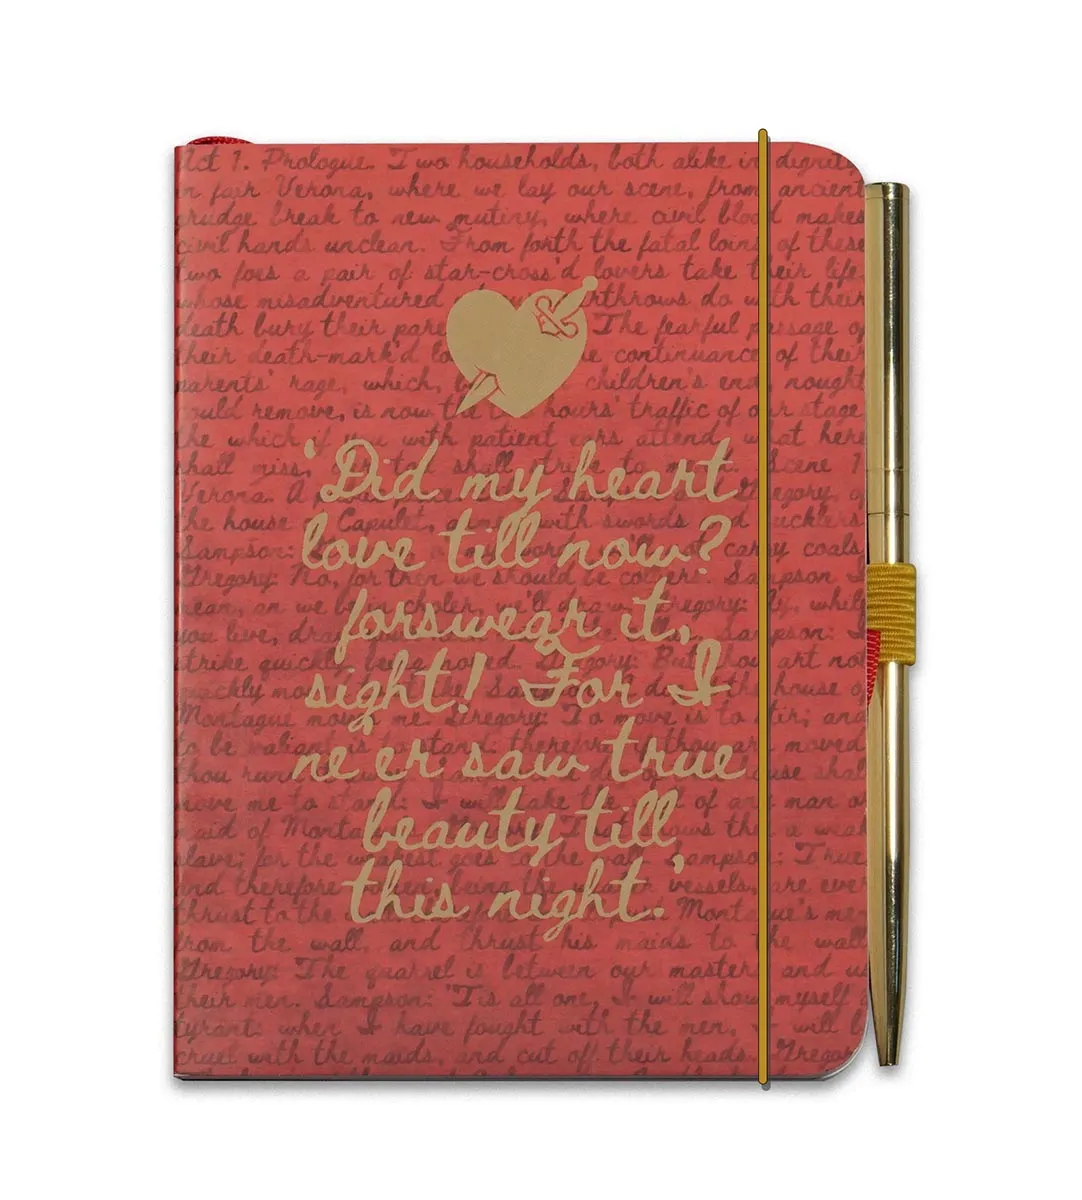 Act 1. Prologue. Two households, both alike in dignity
in fair Verona, where we lay our scene, from ancient
grudge break to new mutiny, where civil blood makes
civil hands unclean. From forth the fatal loins of these
two foes a pair of star-cross'd lovers take their life
whose misadventured rthrows do with their
death bury their pare The fearful passage o
their death-mark'd lo e continuance of their
parents' rage, which, b children's end, nought
could remove, is now the hours' traffic of our stage
the which if you with patient ears attend, what here
shall miss, to Scene 1
'Did my heart
Verona. A Gregory, o
the house o Capulet, with swords d ucklers
love till now?
Sampson: carry coals
Gregory: No, for then we should be colliers. Sampson I
mean, an we be in choler, we'll draw. Gregory: Ay, while
forswear it,
you live, dra Sampson: I
strike quickly being moved. Gregory: But thou art not
sight! For I
quickly mo the house o
Montague moves me. Gregory: To move is to stir; and
to be valiant is to stand: therefore thou art moved
ne'er saw true
thou run shal
move me to stand: I will take the of any man or
maid of Monta a weak
beauty till
slave; for the weakest goes to the wall. Sampson: True
and therefore being the vessels, are ever
this night.'
thrust to the Montague's me
from the wall, and thrust his maids to the wall
Gregory: The quarrel is between our masters and us
their men. Sampson: 'Tis all one, I will show myself a
tyrant: when I have fought with the men, I will b
cruel with the maids, and cut off their heads. Gregor